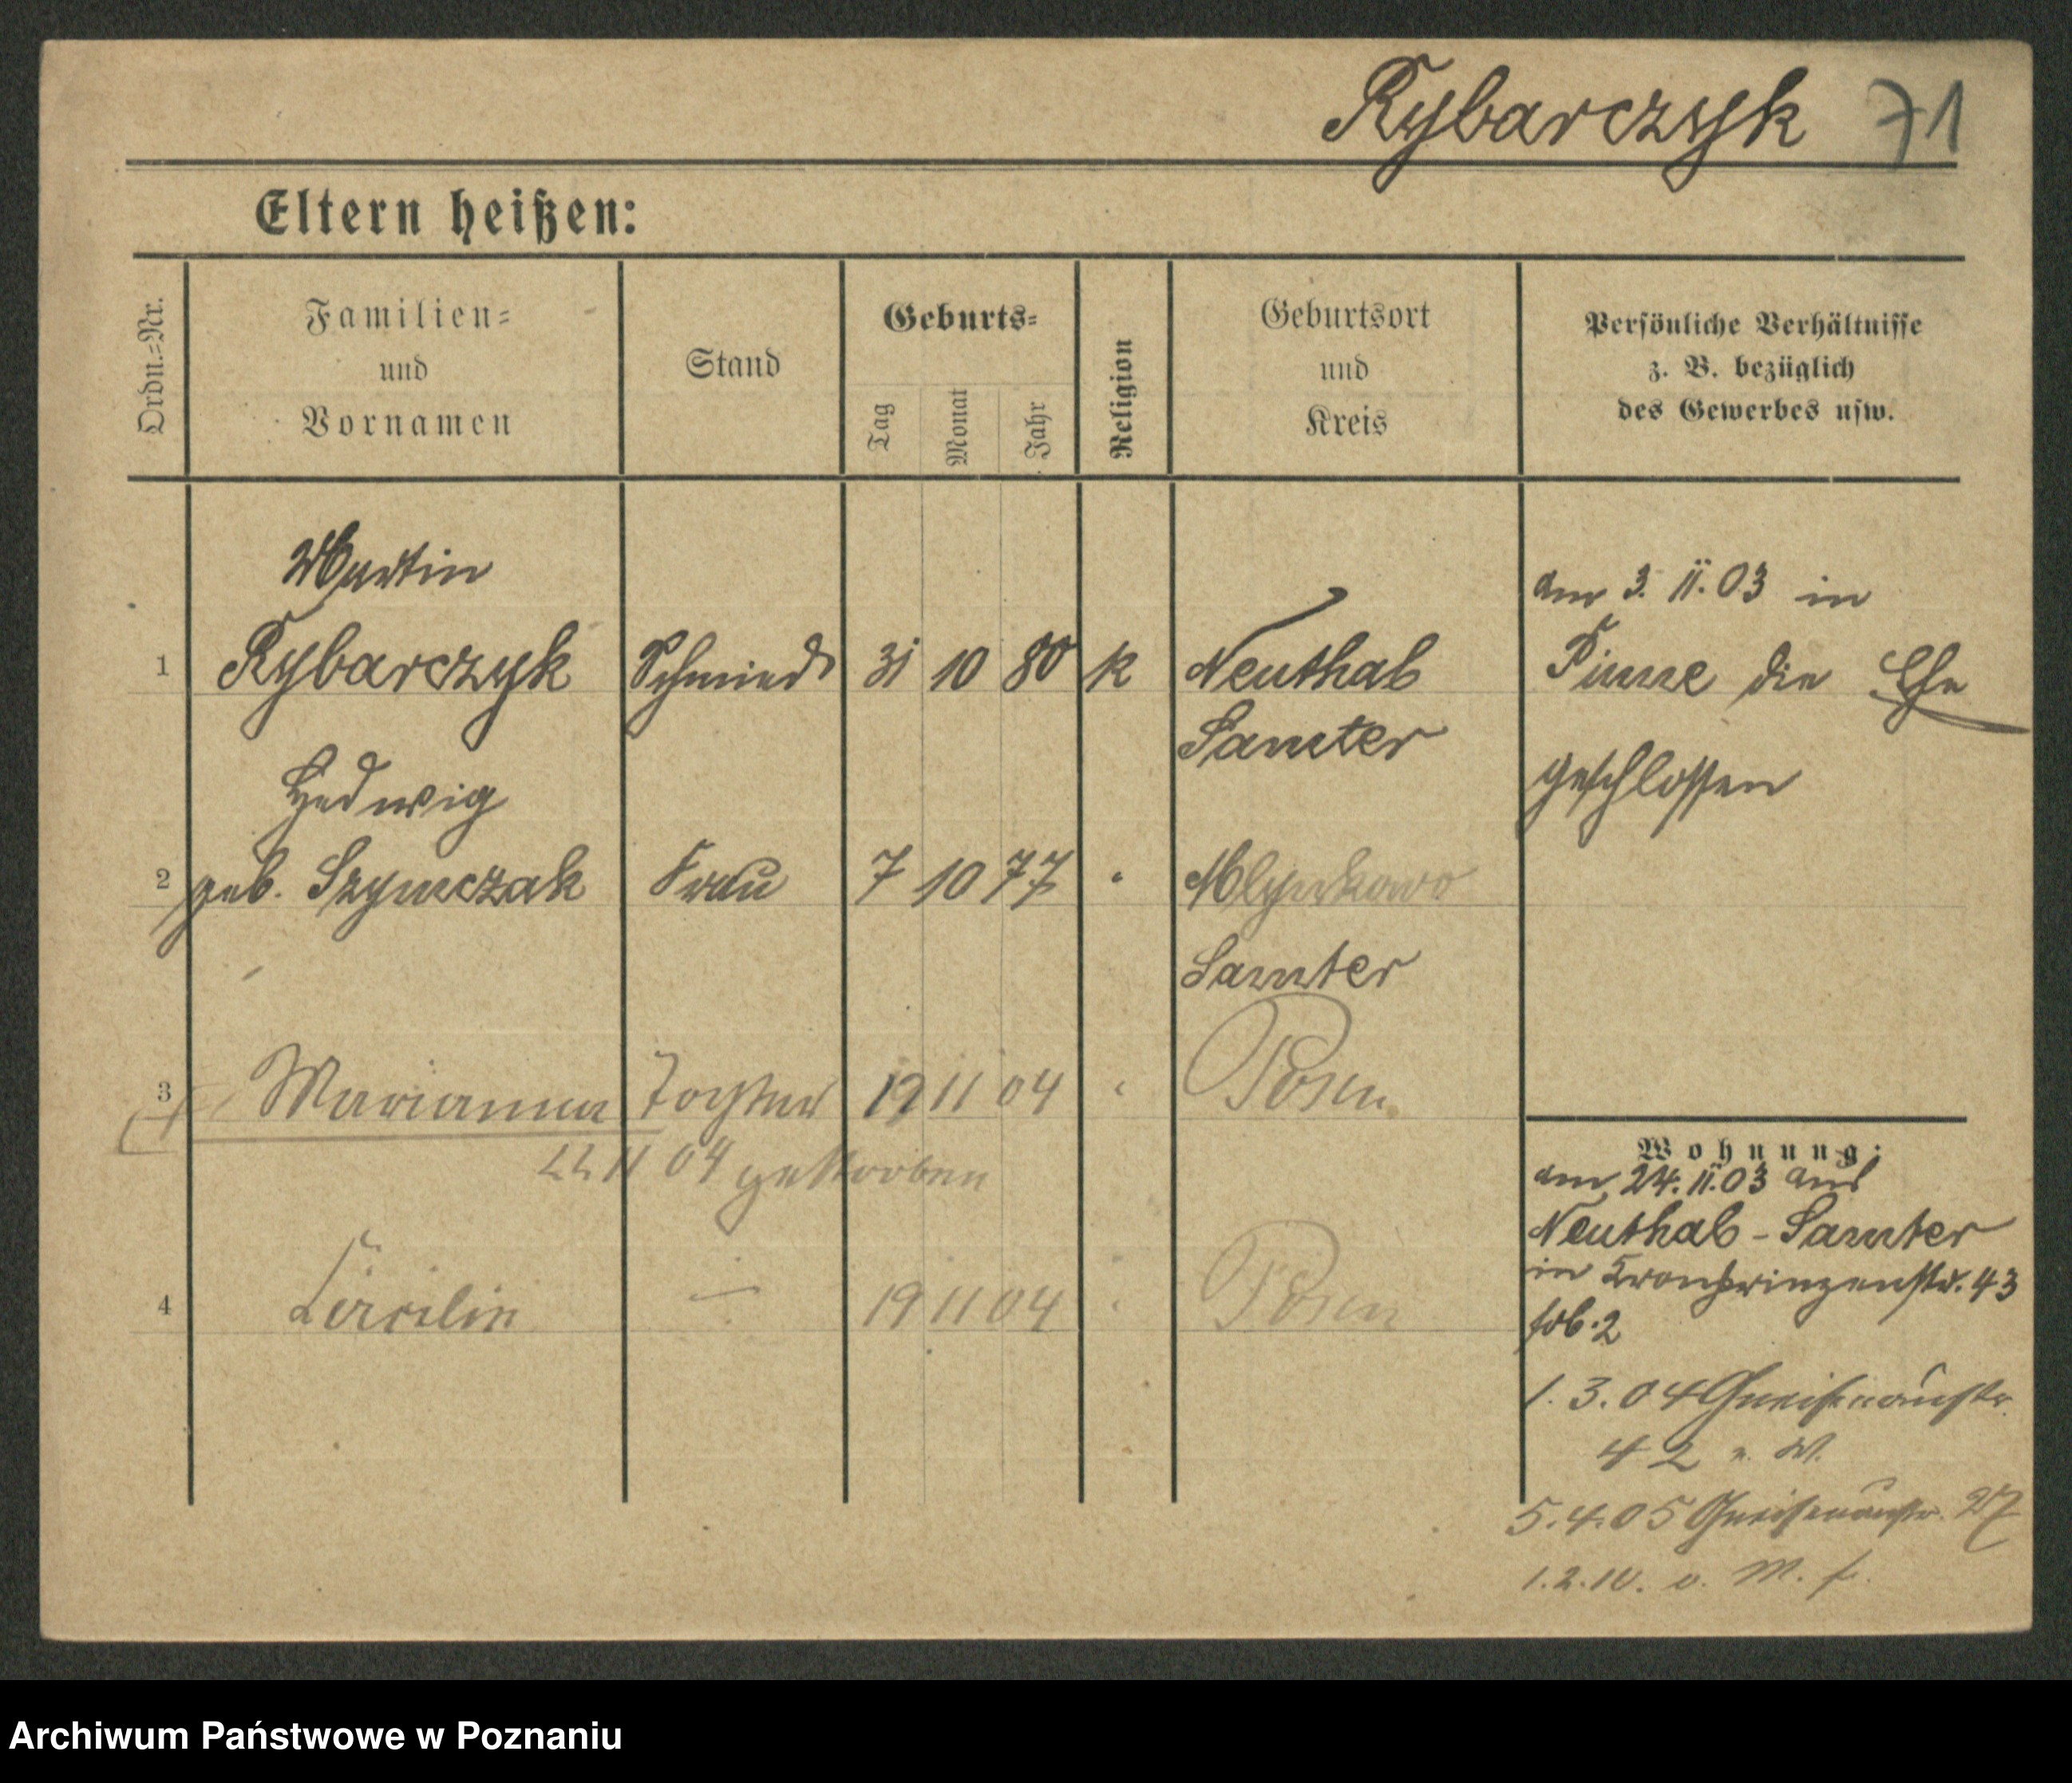 Rybarczyk 71
Eltern heißen:
Ordn.=Nr.
Familien=
und
Vornamen
Stand
Geburts=
Tag
Monat
Jahr
Religion
Geburtsort
und
Kreis
Persönliche Verhältnisse
z. B. bezüglich
des Gewerbes usw.
Martin
1 Rybarczyk Schmied 31 10 80 k Neuthal
Samter
am 3. 11. 03 in
Pinne die Ehe
geschlossen
Hedwig
2 geb. Szymczak Frau 7 10 77 " Mlynkowo
Samter
3 Marianna Tochter 19 11 04 " Posen
22 11 04 gestorben
4 — 19 11 04 " Posen
Wohnung:
am 24. 11. 03 aus
Neuthal - Samter
in Kronprinzenstr. 43
1. 3. 04 Gneisenaustr.
42 n. W.
5. 4. 05 Gneisenaustr. 27
1. 2.